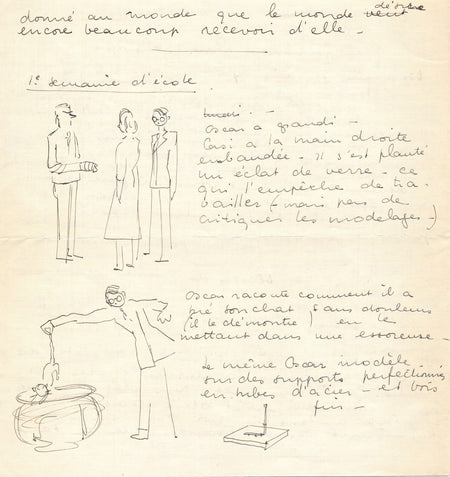 donné au monde que le monde veut désire
encore beaucoup recevoir d'elle -
1e semaine d'école.
Oscar a grandi -
Casi a la main droite
enbandée - il s'est planté
un éclat de verre - ce
qui l'empêche de tra-
vailler (mais pas de
critiquer les modelages -)
Oscar raconte comment il a
son chat sans douleurs
(il le démontre) en le
mettant dans une essoreuse -
Le même Oscar modèle
sur des supports perfectionnés
en tubes d'acier - et bois
fin -